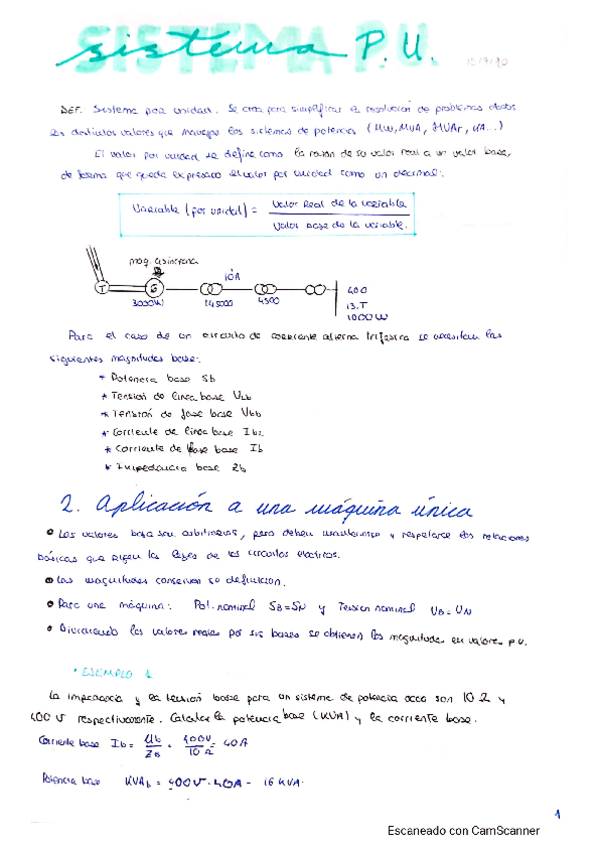 sistema P.U.
DEF: Sistema por unidad. Se crea para simplificar la resolución de problemas dados
los distintos valores que manejan los sistemas de potencia (MW, MVA, MVAr, kA...)
El valor por unidad se define como la razón de su valor real a un valor base,
de forma que queda expresado el valor por unidad como un decimal:
Variable (por unidad) = Valor Real de la variable / Valor Base de la variable.
máq. asíncrona
10A
T G 400
3000W 145000 4500 B.T
1000W
Para el caso de un circuito de corriente alterna trifásica se necesitan las
siguientes magnitudes base:
* Potencia base Sb
* Tensión de línea base
* Tensión de fase base
* Corriente de línea base
* Corriente de fase base Ib
* Impedancia base Zb
2. Aplicación a una máquina única
• Los valores base son arbitrarios, pero deben y respetarse las relaciones
básicas que rigen las leyes de los circuitos eléctricos.
• Las magnitudes conservan su definición.
• Para una máquina: Pot. nominal SB=SN y Tensión nominal UB=UN
• Dividiendo los valores reales por sus bases se obtienen las magnitudes en valores p.u.
• EJEMPLO 1
La impedancia y la tensión base para un sistema de potencia dado son 10 Ω y
400 V respectivamente. Calcular la potencia base (KVA) y la corriente base.
Corriente base Ib = Ub/ZB = 400V/10 Ω = 40A
Potencia base KVAb = 400V · 40A = 16 KVA.
1
Escaneado con CamScanner